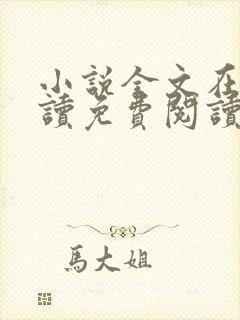 小說全文在
讀免費閱讀
馬大姐